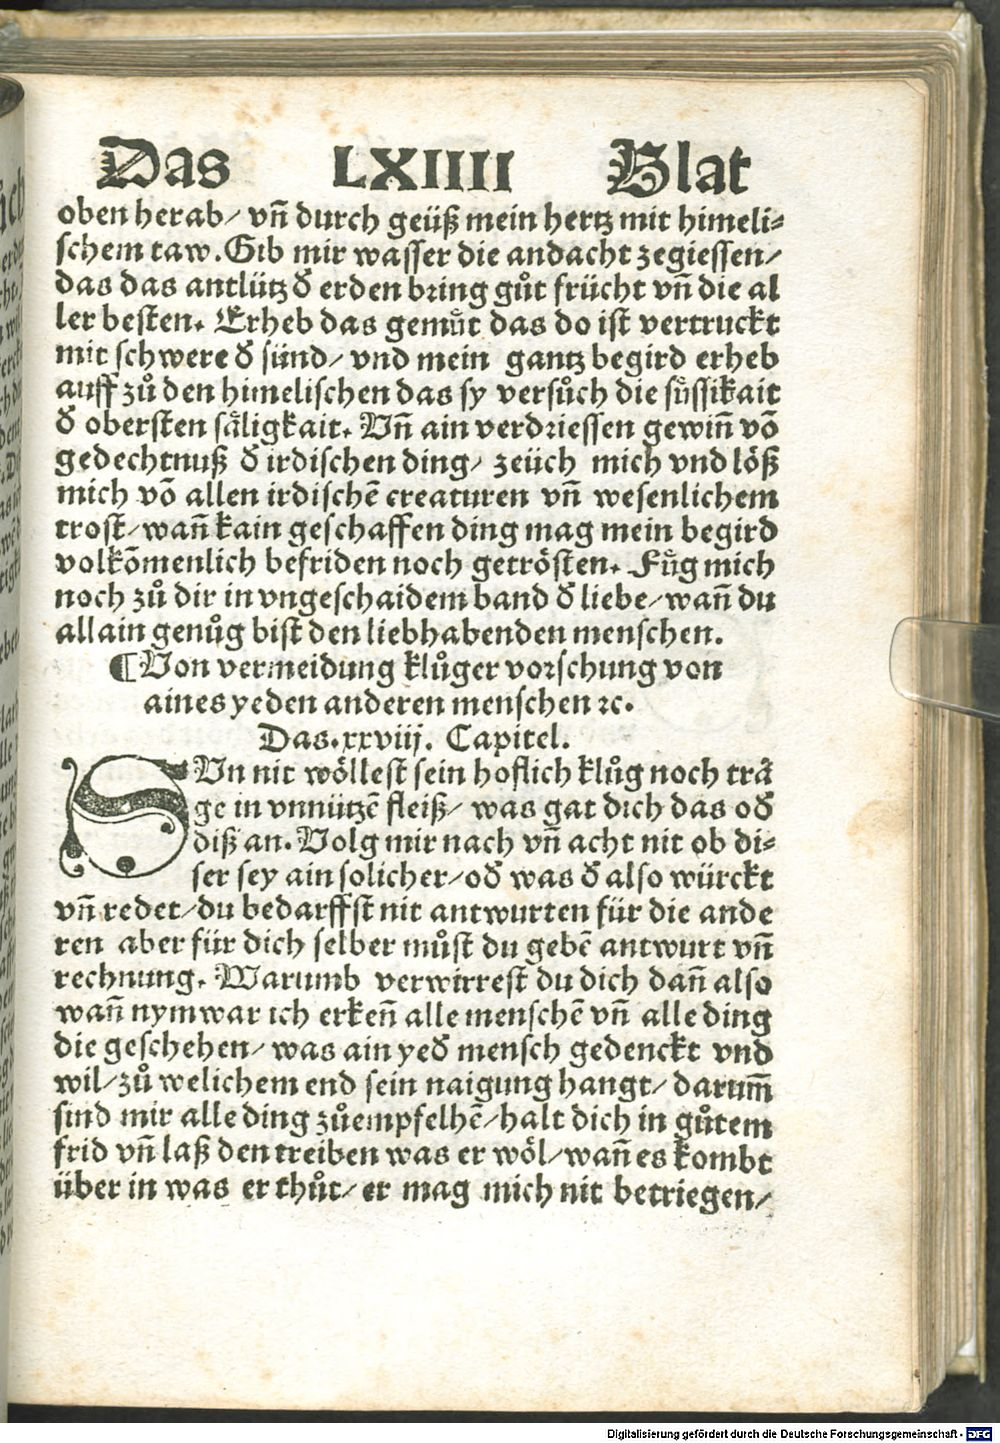 Das LXIIII Blat
oben herab/ vn̄ durch geüß mein hertz mit himeli⸗
schem taw. Gib mir wasser die andacht zegiessen/
das das antlütz đ erden bꝛing gůt frücht vn̄ die al
ler besten. Erheb das gemuͤt das do ist vertruckt
mit schwere đ sünd/ vnd mein gantz begird erheb
auff zů den himelischen das sy versůch die suͤssikait
đ obersten saͤligkait. Vn̄ ain verdꝛiessen gewin̄ vō
gedechtnuß đ irdischen ding/ zeüch mich vnd löß
mich vō allen irdischē creaturen vn̄ wesenlichem
trost/ wan̄ kain geschaffen ding mag mein begird
volkōmenlich befriden noch getrösten. Fuͤg mich
noch zů dir in vngeschaidem band đ liebe/ wan̄ du
allain genůg bist den liebhabenden menschen.
¶Von vermeidung klůger vorschung von
aines yeden anderen menschen ꝛc.
Das.xxviij. Capitel.
SVn nit wöllest sein hoflich klůg noch traͤ
ge in vnnützē fleiß/ was gat dich das ođ
diß an. Volg mir nach vn̄ acht nit ob di⸗
ser sey ain solicher/ ođ was đ also würckt
vn̄ redet/ du bedarffst nit antwurten für die ande
ren aber für dich selber můst du gebē antwurt vn̄
rechnung. Warumb verwirrest du dich dan̄ also
wan̄ nym war ich erken̄ alle menschē vn̄ alle ding
die geschehen/ was ain yeđ mensch gedenckt vnd
wil/ zů welichem end sein naigung hangt/ darum̄
sind mir alle ding zůempfelhē/ halt dich in gůtem
frid vn̄ laß den treiben was er wöl/ wan̄ es kombt
über in was er thůt/ er mag mich nit betriegen/
Digitalisierung gefördert durch die Deutsche Forschungsgemeinschaft - DFG